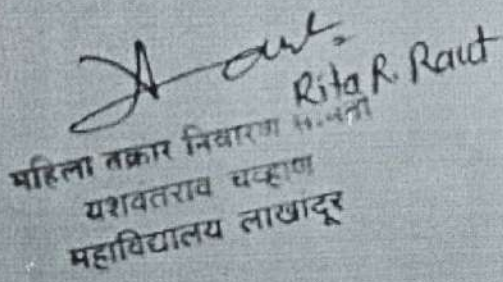 Rita R. Raut
महिला तक्रार निवारण
यशवंतराव चव्हाण
महाविद्यालय लाखांदूर